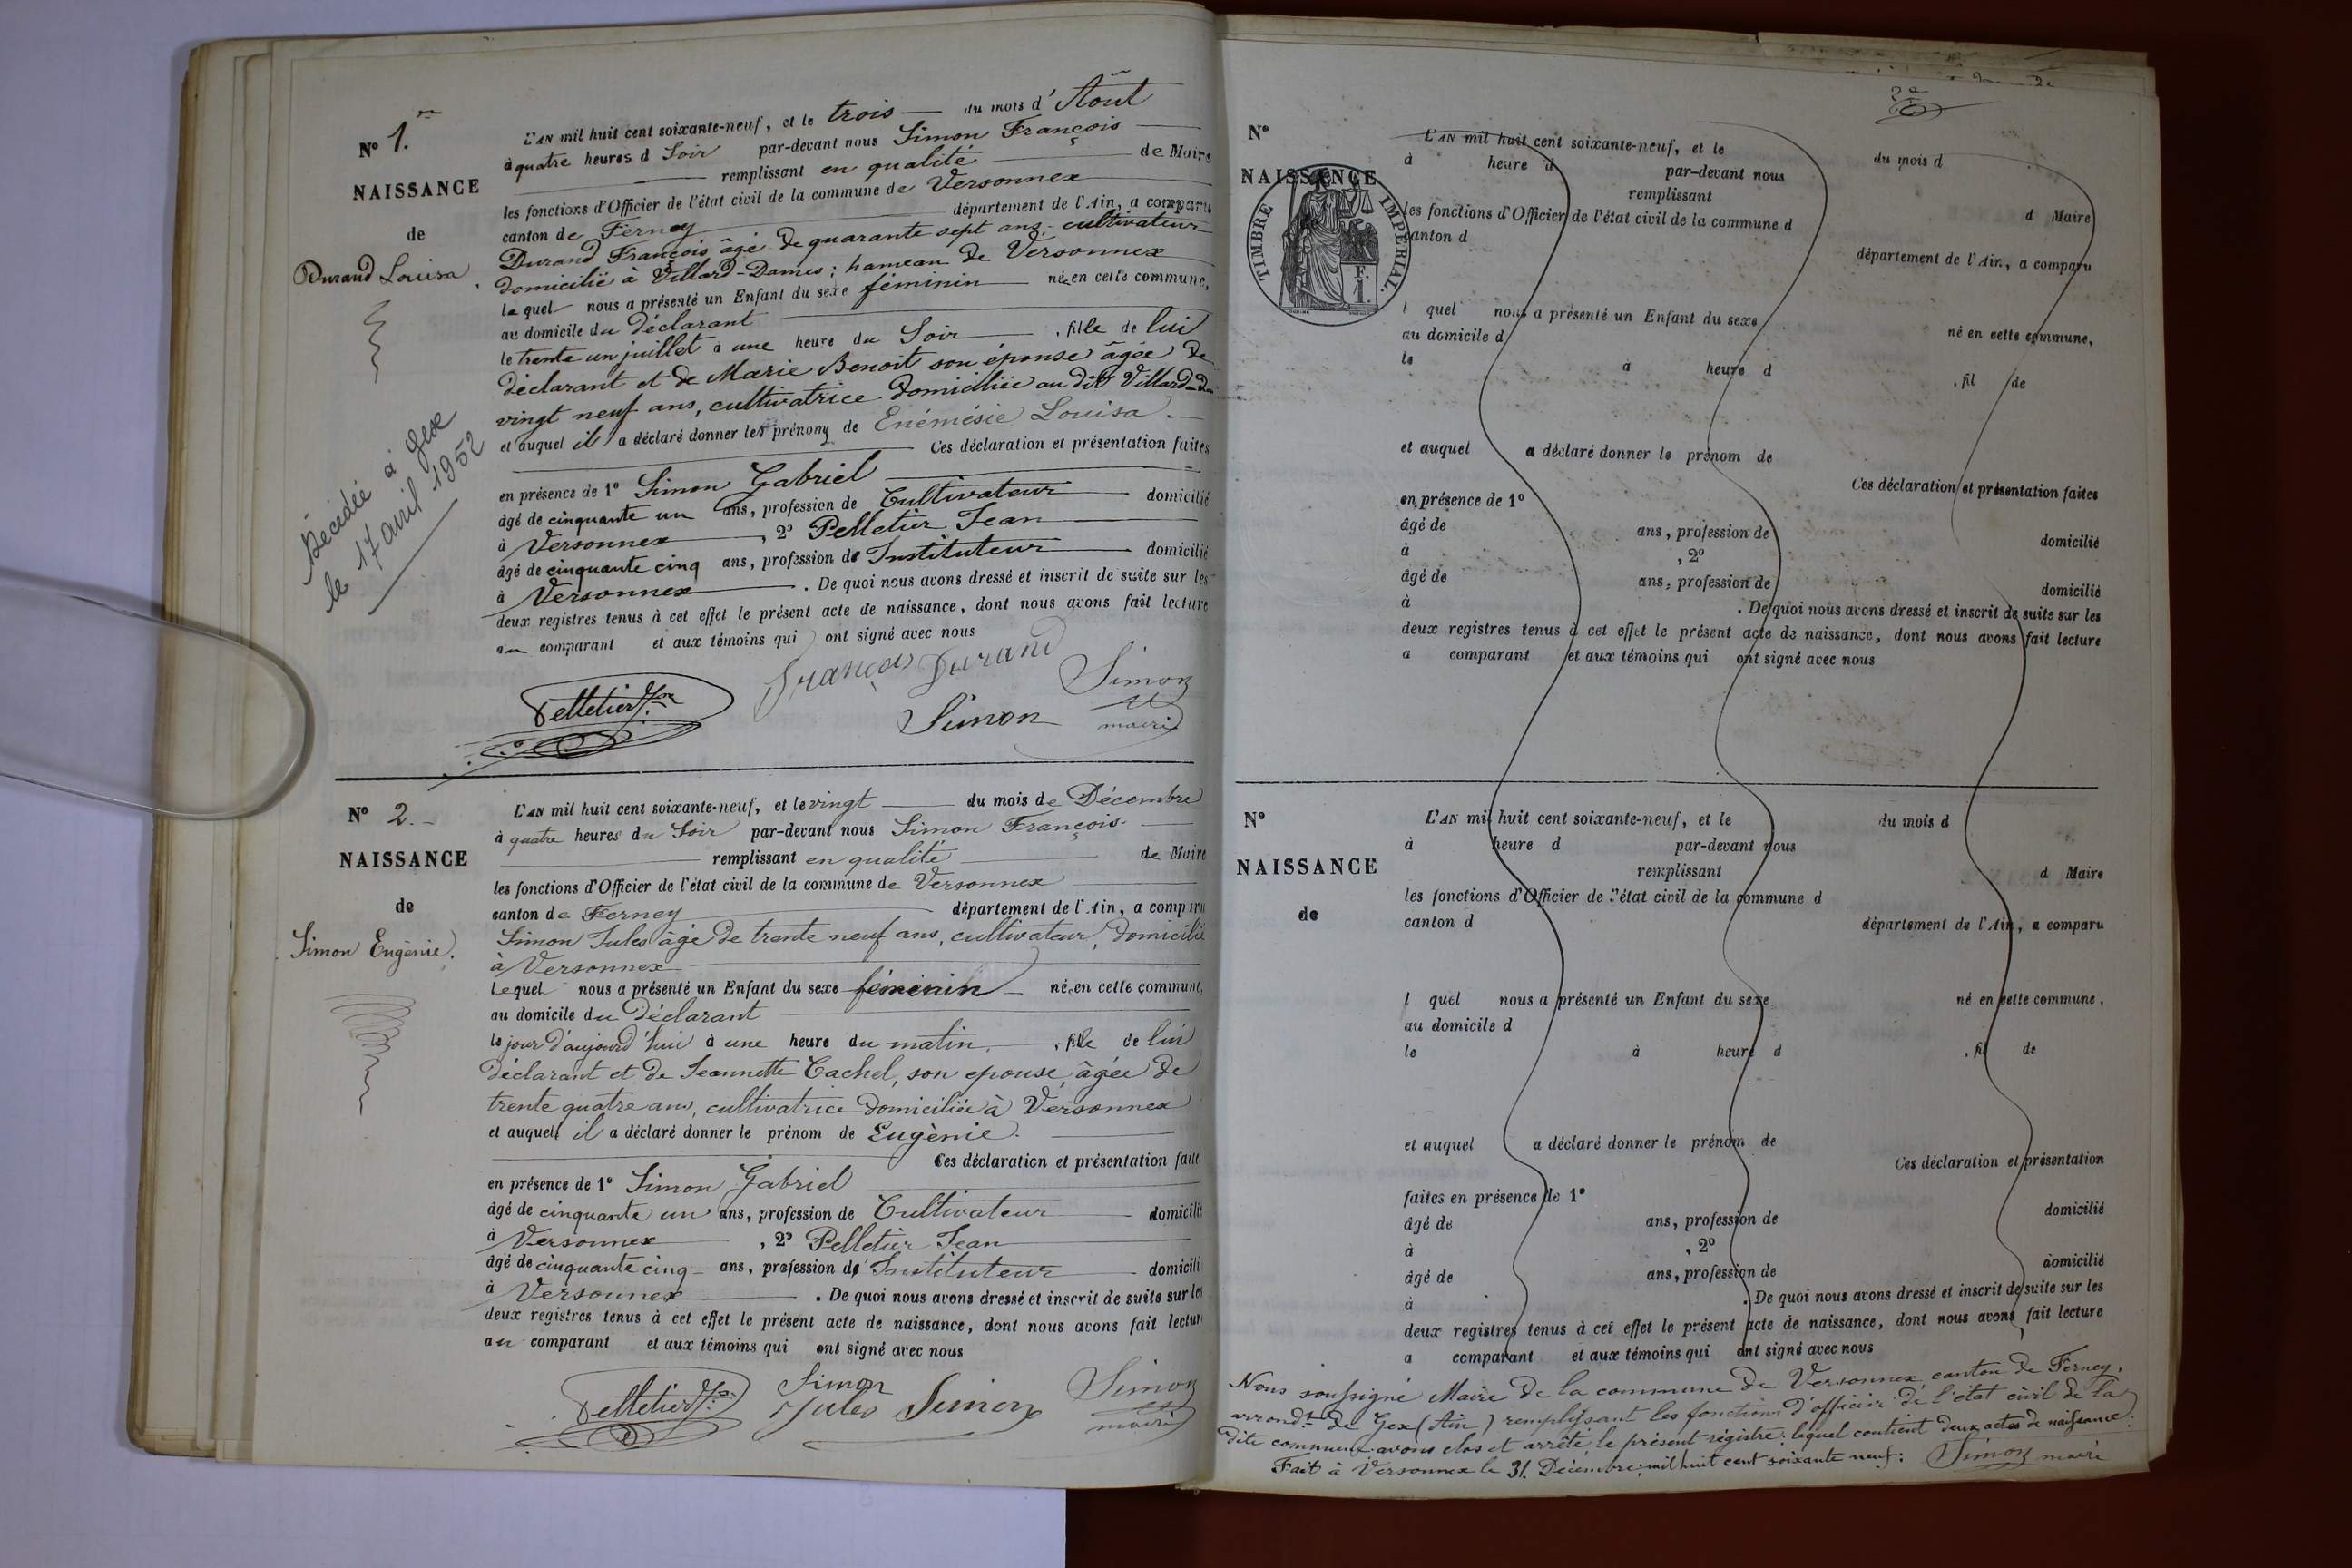 N° 1.er
NAISSANCE
de
Durand Louisa
Décédée à Gex
le 17 avril 1952
L'AN mil huit cent soixante-neuf, et le trois du mois d'Août
à quatre heures d Soir par-devant nous Simon François
remplissant en qualité de Maire
les fonctions d'Officier de l'état civil de la commune de Versonnex
canton de Ferney département de l'Ain, a comparu
Durand François âgé de quarante sept ans, cultivateur
domicilié à Villard-Dames; hameau de Versonnex
lequel nous a présenté un Enfant du sexe féminin née en cette commune,
au domicile du déclarant
le trente un juillet à une heure du Soir, fille de lui
déclarant et de Marie Benoit son épouse âgée de
vingt neuf ans, cultivatrice domiciliée au dit Villard-da
et auquel il a déclaré donner les prénoms de Enémésie Louisa.
Ces déclaration et présentation faites
en présence de 1° Simon Gabriel
âgé de cinquante un ans, profession de Cultivateur domicilié
à Versonnex, 2° Pelletier Jean
âgé de cinquante cinq ans, profession de Instituteur domicilié
à Versonnex. De quoi nous avons dressé et inscrit de suite sur les
deux registres tenus à cet effet le présent acte de naissance, dont nous avons fait lecture
au comparant et aux témoins qui ont signé avec nous
François Durand
Pelletier Jn Simon Simon
maire
N° 2.
NAISSANCE
de
Simon Eugènie.
L'AN mil huit cent soixante-neuf, et le vingt du mois de Décembre
à quatre heures du Soir par-devant nous Simon François
remplissant en qualité de Maire
les fonctions d'Officier de l'état civil de la commune de Versonnex
canton de Ferney département de l'Ain, a comparu
Simon Jules âgé de trente neuf ans, cultivateur, domicilié
à Versonnex
lequel nous a présenté un Enfant du sexe féminin née en cette commune,
au domicile du déclarant
le jour d'aujourd'hui à une heure du matin, fille de lui
déclarant et de Jeannette Cachel, son epouse, âgée de
trente quatre ans, cultivatrice domiciliée à Versonnex
et auquel il a déclaré donner le prénom de Eugènie.
Ces déclaration et présentation faites
en présence de 1° Simon Gabriel
âgé de cinquante un ans, profession de Cultivateur domicilié
à Versonnex, 2° Pelletier Jean
âgé de cinquante cinq ans, profession de Instituteur domicilié
à Versonnex. De quoi nous avons dressé et inscrit de suite sur les
deux registres tenus à cet effet le présent acte de naissance, dont nous avons fait lecture
au comparant et aux témoins qui ont signé avec nous
Pelletier Jn Simon Jules Simon Simon
maire
2e
N°
NAISSANCE
TIMBRE IMPERIAL.
L'AN mil huit cent soixante-neuf, et le du mois d
à heure d par-devant nous
remplissant d Maire
les fonctions d'Officier de l'état civil de la commune d
canton d département de l'Ain, a comparu
l quel nous a présenté un Enfant du sexe né en cette commune,
au domicile d
le à heure d, fil de
et auquel a déclaré donner le prénom de
Ces déclaration et présentation faites
en présence de 1°
âgé de ans, profession de domicilié
à , 2°
âgé de ans, profession de domicilié
à . De quoi nous avons dressé et inscrit de suite sur les
deux registres tenus à cet effet le présent acte de naissance, dont nous avons fait lecture
a comparant et aux témoins qui ont signé avec nous
N°
NAISSANCE
de
L'AN mil huit cent soixante-neuf, et le du mois d
à heure d par-devant nous
remplissant d Maire
les fonctions d'Officier de l'état civil de la commune d
canton d département de l'Ain, a comparu
l quel nous a présenté un Enfant du sexe né en cette commune,
au domicile d
le à heure d, fil de
et auquel a déclaré donner le prénom de
Ces déclaration et présentation
faites en présence de 1°
âgé de ans, profession de domicilié
à , 2°
âgé de ans, profession de domicilié
à . De quoi nous avons dressé et inscrit de suite sur les
deux registres tenus à cet effet le présent acte de naissance, dont nous avons fait lecture
a comparant et aux témoins qui ont signé avec nous
Nous soussigné Maire de la commune de Versonnex, canton de Ferney,
arrondt de Gex (Ain) remplissant les fonctions d'officier de l'état civil de la
dite commune avons clos et arrêté le présent régistre; lequel contient deux actes de naissance.
Fait à Versonnex le 31 Décembre mil huit cent soixante neuf: Simon maire